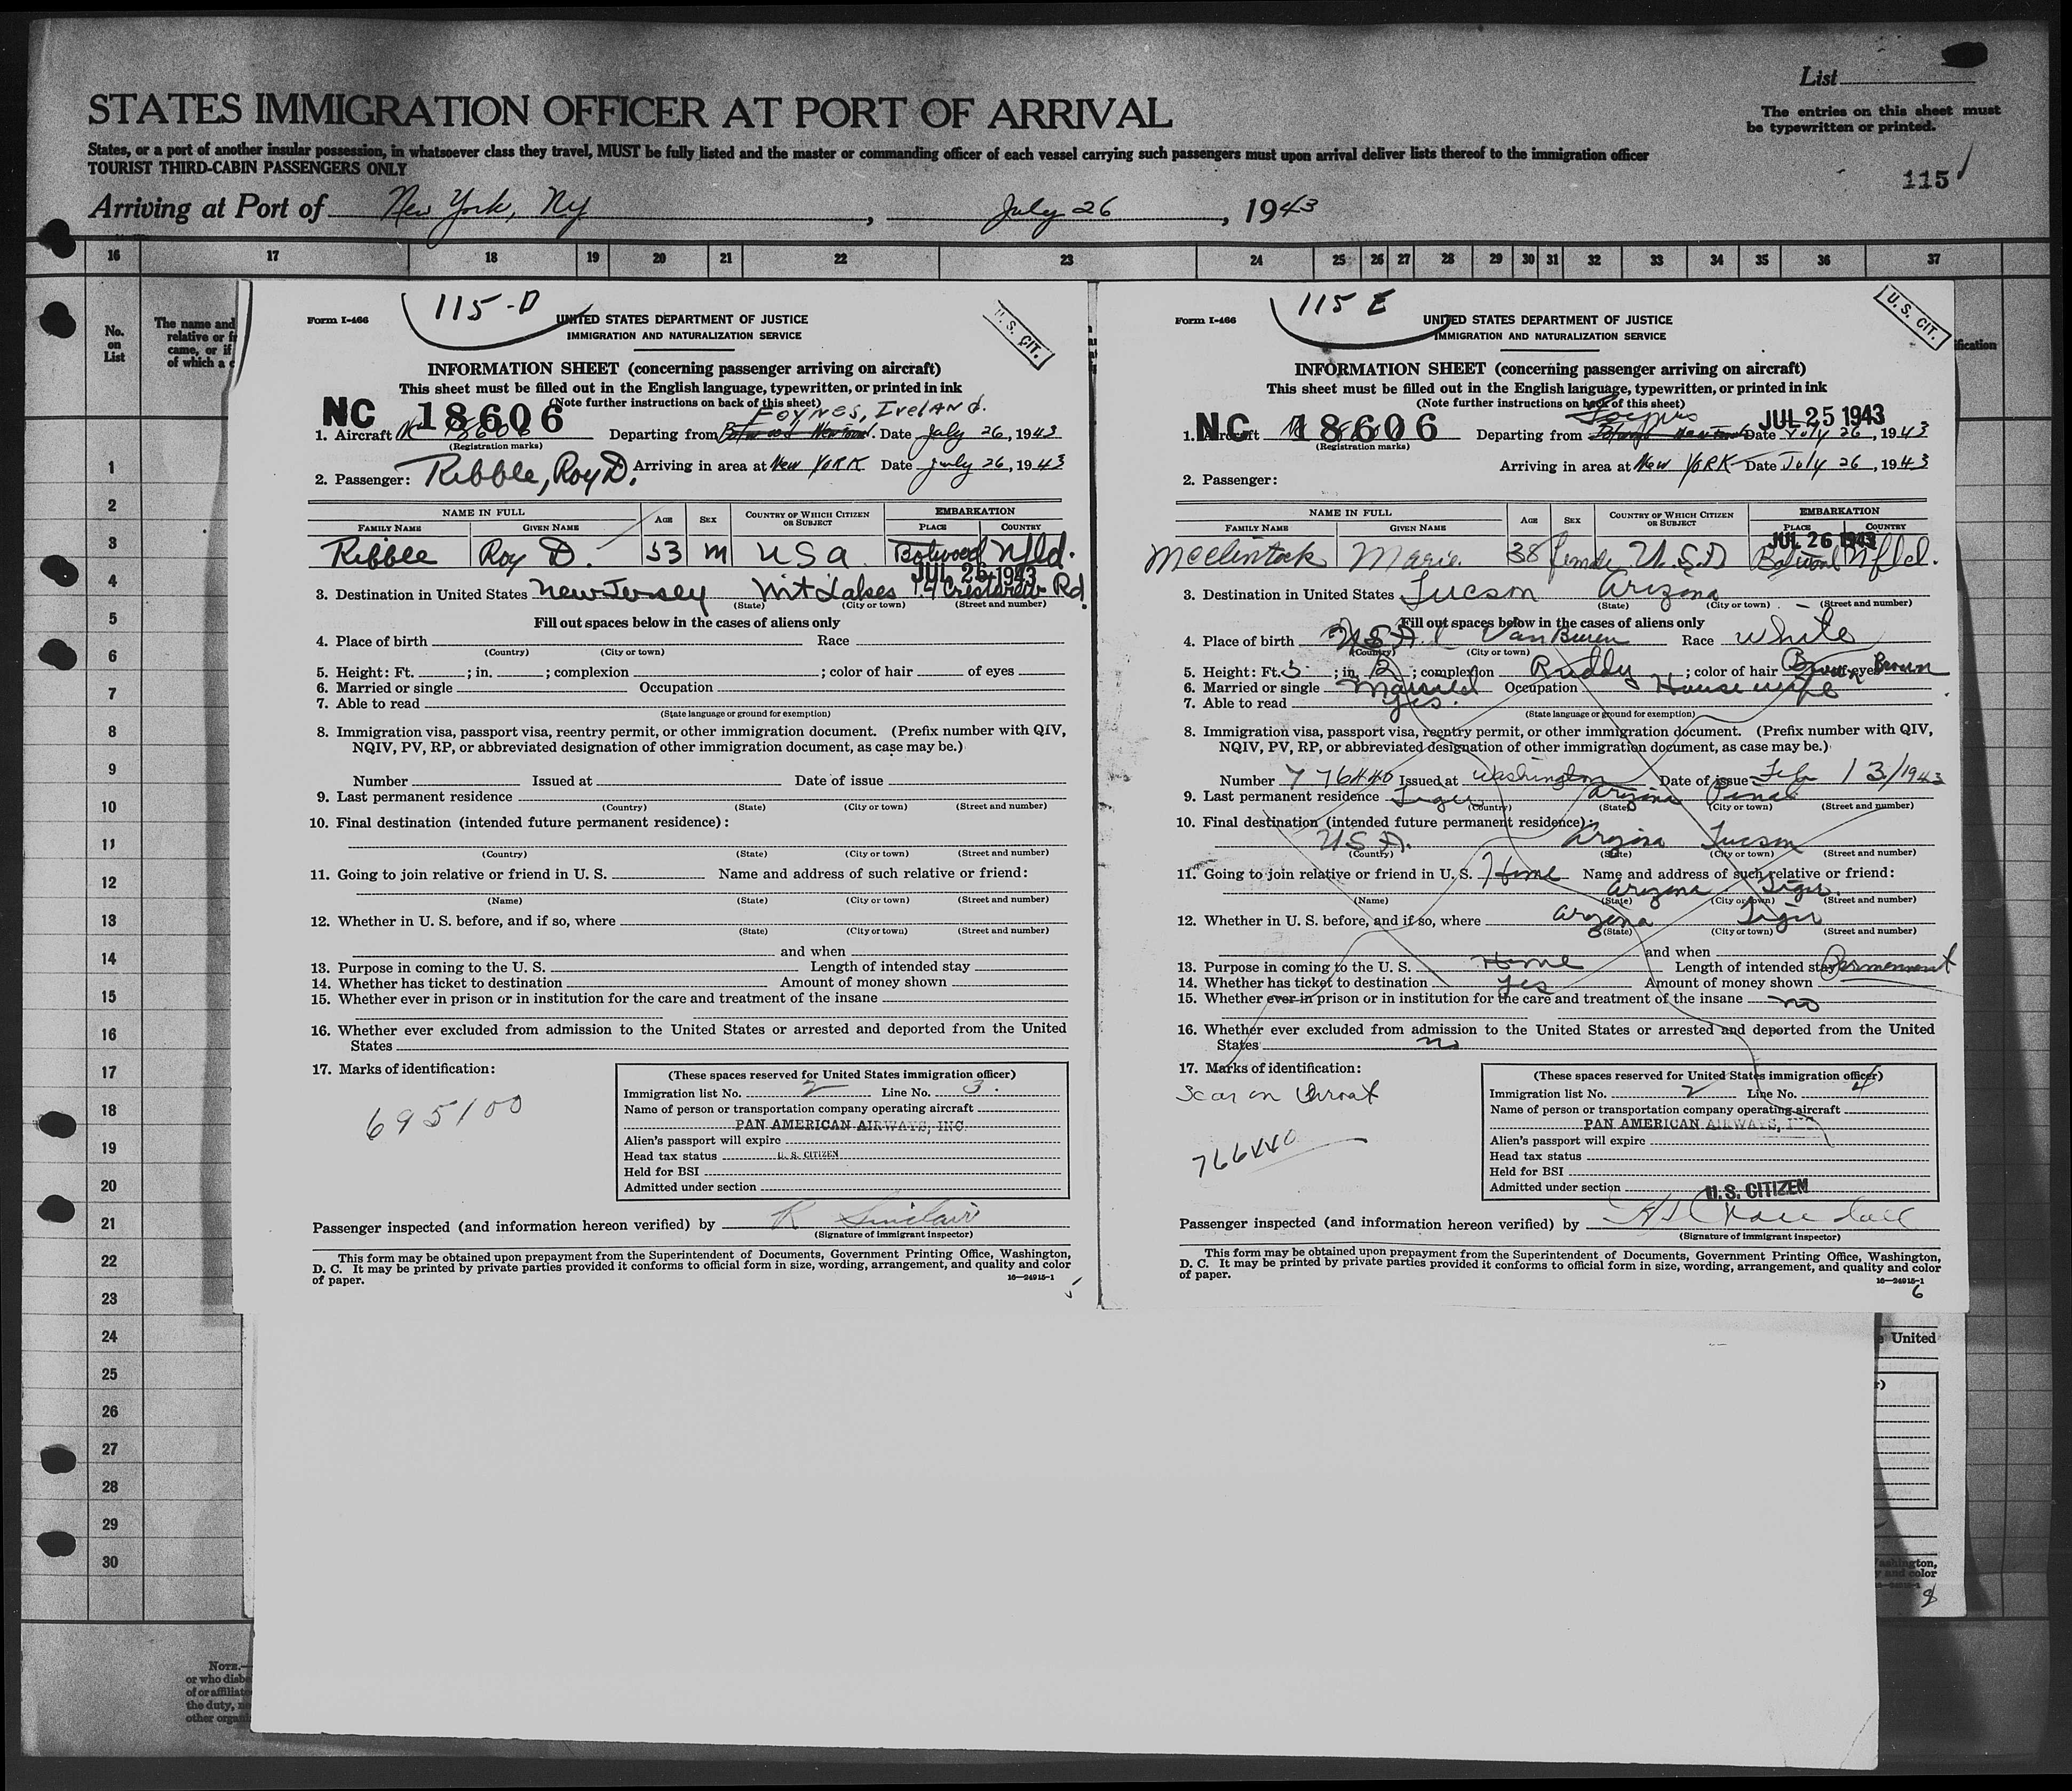 List
STATES IMMIGRATION OFFICER AT PORT OF ARRIVAL
The entries on this sheet must
be typewritten or printed.
States, or a port of another insular possession, in whatsoever class they travel, MUST be fully listed and the master or commanding officer of each vessel carrying such passengers must upon arrival deliver lists thereof to the immigration officer
TOURIST THIRD-CABIN PASSENGERS ONLY
115
Arriving at Port of New York, Ny, July 26, 1943
16 17 18 19 20 21 22 23 24 25 26 27 28 29 30 31 32 33 34 35 36 37
No.
on
List
The name and
relative or f
came, or if
of which a c
1
2
3
4
5
6
7
8
9
10
11
12
13
14
15
16
17
18
19
20
21
22
23
24
25
26
27
28
29
30
NOTE.—
or who disbe
of or affiliate
the duty, ne
other organi
115-D
U. S. CIT.
Form I-466
UNITED STATES DEPARTMENT OF JUSTICE
IMMIGRATION AND NATURALIZATION SERVICE
INFORMATION SHEET (concerning passenger arriving on aircraft)
This sheet must be filled out in the English language, typewritten, or printed in ink
(Note further instructions on back of this sheet)
NC 18606
FOYNES, IreLAND.
1. Aircraft NC 18606 Departing from Date July 26, 1943
(Registration marks)
Arriving in area at New YORK Date July 26, 1943
2. Passenger: Ribble, Roy D.
NAME IN FULL AGE SEX COUNTRY OF WHICH CITIZEN OR SUBJECT EMBARKATION
FAMILY NAME GIVEN NAME PLACE COUNTRY
Ribble Roy D. 53 M USA Botwood Nfld.
JUL 26 1943
3. Destination in United States New Jersey Mt Lakes 14 Crestview Rd.
(State) (City or town) (Street and number)
Fill out spaces below in the cases of aliens only
4. Place of birth Race
(Country) (City or town)
5. Height: Ft. ; in. ; complexion ; color of hair of eyes
6. Married or single Occupation
7. Able to read
(State language or ground for exemption)
8. Immigration visa, passport visa, reentry permit, or other immigration document. (Prefix number with QIV,
NQIV, PV, RP, or abbreviated designation of other immigration document, as case may be.)
Number Issued at Date of issue
9. Last permanent residence
(Country) (State) (City or town) (Street and number)
10. Final destination (intended future permanent residence):
(Country) (State) (City or town) (Street and number)
11. Going to join relative or friend in U. S. Name and address of such relative or friend:
(Name) (State) (City or town) (Street and number)
12. Whether in U. S. before, and if so, where
(State) (City or town) (Street and number)
and when
13. Purpose in coming to the U. S. Length of intended stay
14. Whether has ticket to destination Amount of money shown
15. Whether ever in prison or in institution for the care and treatment of the insane
16. Whether ever excluded from admission to the United States or arrested and deported from the United
States
17. Marks of identification:
695100
(These spaces reserved for United States immigration officer)
Immigration list No. 2 Line No. 3.
Name of person or transportation company operating aircraft
PAN AMERICAN AIRWAYS, INC.
Alien's passport will expire
Head tax status U. S. CITIZEN
Held for BSI
Admitted under section
Passenger inspected (and information hereon verified) by R Sinclair
(Signature of immigrant inspector)
This form may be obtained upon prepayment from the Superintendent of Documents, Government Printing Office, Washington,
D. C. It may be printed by private parties provided it conforms to official form in size, wording, arrangement, and quality and color
of paper.
16—24915-1
115 E
U. S. CIT.
Form I-466
UNITED STATES DEPARTMENT OF JUSTICE
IMMIGRATION AND NATURALIZATION SERVICE
INFORMATION SHEET (concerning passenger arriving on aircraft)
This sheet must be filled out in the English language, typewritten, or printed in ink
(Note further instructions on back of this sheet)
NC 18606
JUL 25 1943
1. Aircraft Departing from Foynes Date July 26, 1943
(Registration marks)
Arriving in area at New YORK Date July 26, 1943
2. Passenger:
NAME IN FULL AGE SEX COUNTRY OF WHICH CITIZEN OR SUBJECT EMBARKATION
FAMILY NAME GIVEN NAME PLACE COUNTRY
JUL 26 1943
McClintock Marie 38 female U.S.A Botwood Nfld.
3. Destination in United States Tucson Arizona
(State) (City or town) (Street and number)
Fill out spaces below in the cases of aliens only
4. Place of birth U.S.A. Van Buren Race White
(Country) (City or town)
5. Height: Ft. 5 ; in. 2 ; complexion Ruddy ; color of hair Brown of eyes Brown
6. Married or single Married Occupation Housewife
7. Able to read yes.
(State language or ground for exemption)
8. Immigration visa, passport visa, reentry permit, or other immigration document. (Prefix number with QIV,
NQIV, PV, RP, or abbreviated designation of other immigration document, as case may be.)
Number 776440 Issued at Washington Date of issue Feb 13/1943
9. Last permanent residence Tiger Arizona Pinal
(Country) (State) (City or town) (Street and number)
10. Final destination (intended future permanent residence):
U S A. Arizona Tucson
(Country) (State) (City or town) (Street and number)
11. Going to join relative or friend in U. S. Home Name and address of such relative or friend:
Arizona Tiger.
(Name) (State) (City or town) (Street and number)
12. Whether in U. S. before, and if so, where Arizona Tiger
(State) (City or town) (Street and number)
and when
13. Purpose in coming to the U. S. Home Length of intended stay Permenment
14. Whether has ticket to destination yes Amount of money shown
15. Whether ever in prison or in institution for the care and treatment of the insane no
16. Whether ever excluded from admission to the United States or arrested and deported from the United
States no
17. Marks of identification:
Scar on throat
766440
(These spaces reserved for United States immigration officer)
Immigration list No. 2 Line No. 4
Name of person or transportation company operating aircraft
PAN AMERICAN AIRWAYS, I
Alien's passport will expire
Head tax status
Held for BSI
Admitted under section U. S. CITIZEN
Passenger inspected (and information hereon verified) by
(Signature of immigrant inspector)
This form may be obtained upon prepayment from the Superintendent of Documents, Government Printing Office, Washington,
D. C. It may be printed by private parties provided it conforms to official form in size, wording, arrangement, and quality and color
of paper.
16—24915-1
6
ification
United
ashington,
and color
8